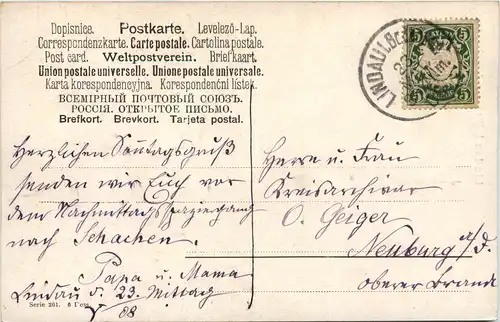 Dopisnice. Postkarte. Levelező-Lap.
Correspondenzkarte. Carte postale. Cartolina postale.
Post card. Weltpostverein. Briefkaart.
Union postale universelle. Unione postale universale.
Karta korespondencyjna. Korespondenční lístek.
ВСЕМІРНЫЙ ПОЧТОВЫЙ СОЮЗЪ.
РОССІЯ. ОТКРЫТОЕ ПИСЬМО.
Brefkort. Brevkort. Tarjeta postal.
LINDAU i. B.
5 5
Herzlichen Sonntagsgruß
senden wir Euch vor
dem Nachmittagsspaziergang
nach Schachen.
Papa u. Mama
Lindau d. 23. Mittag
08
Herrn u. Frau
Kreisarchivar
O. Geiger
Neuburg a/D.
obere
Serie 261.